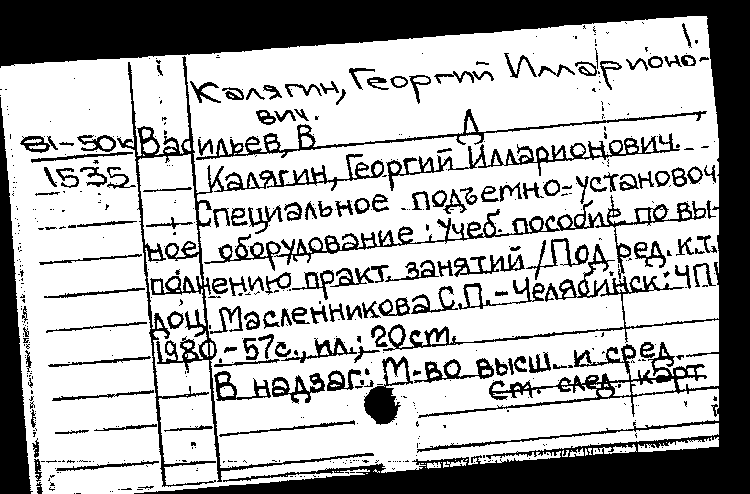 1.
Калягин, Георгий Илларионо-
вич.
81-50к Васильев, В Д
1535 Калягин, Георгий Илларионович.
Специальное подъемно-установоч
ное оборудование : Учеб. пособие по вы-
полнению практ. занятий / Под ред. к.т.
доц. Масленникова С.П. - Челябинск : ЧПИ
1980. - 57с., ил.; 20cm.
В надзаг.: М-во высш. и сред.
См. след. карт.